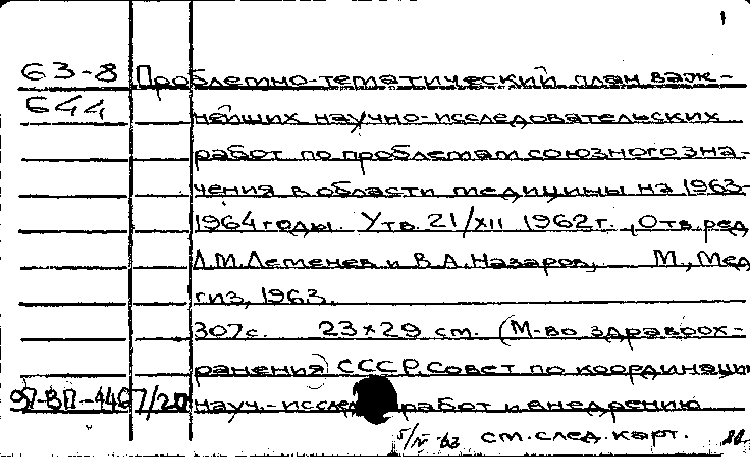 1
63-8 Проблемно-тематический план важ-
644 нейших научно-исследовательских
работ по проблемам союзного зна-
чения в области медицины на 1963-
1964 годы. Утв. 21/XII 1962 г. , Отв. ред
Л.М. и В.А. Назаров, М., Мед
гиз, 1963.
307 с. 23×29 см. (М-во здравоох-
ранения) СССР. Совет по координации
науч.-исслед работ и внедрению
5/IV-63 см. след. карт.